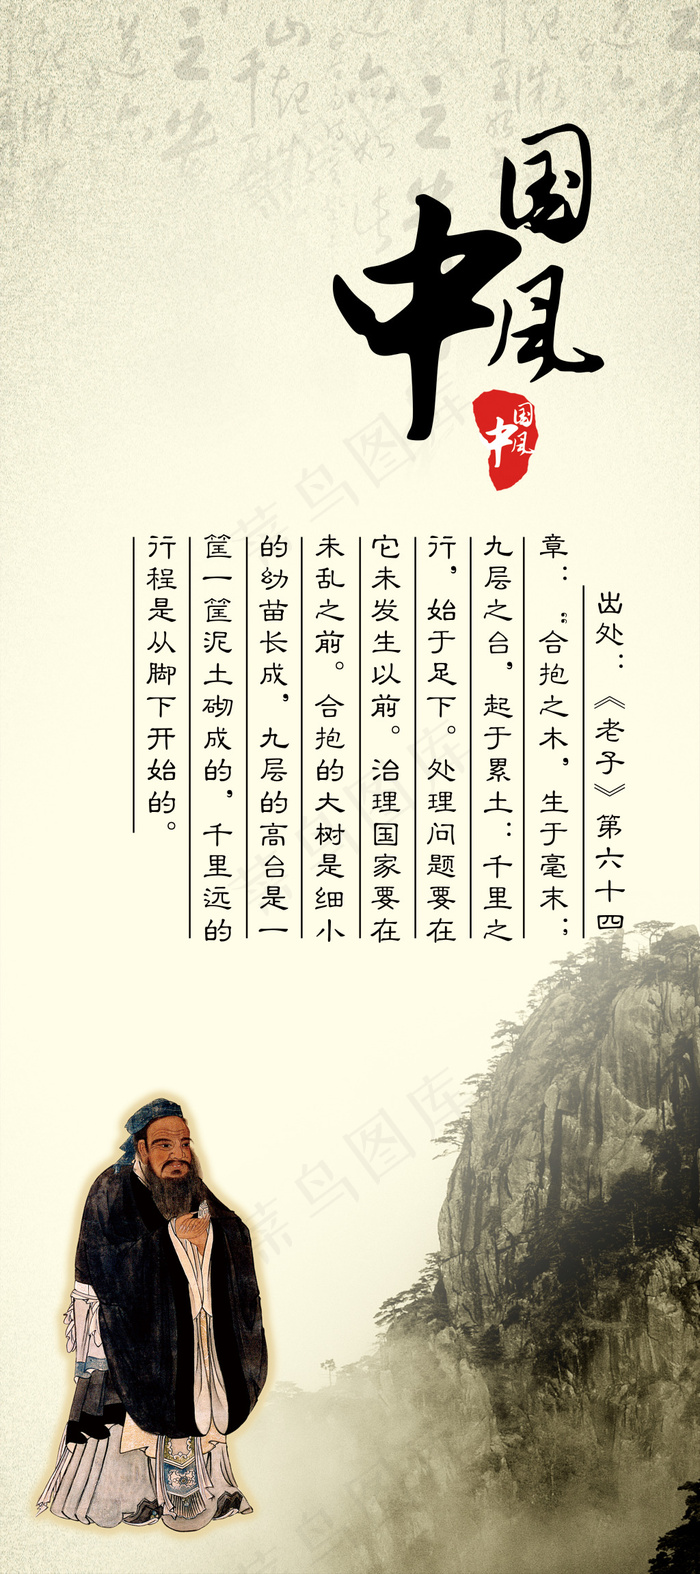 中国风
中国风
出处：《老子》第六十四
章：“合抱之木，生于毫末；
九层之台，起于累土：千里之
行，始于足下。处理问题要在
它未发生以前。治理国家要在
未乱之前。合抱的大树是细小
的幼苗长成，九层的高台是一
筐一筐泥土砌成的，千里远的
行程是从脚下开始的。
菜鸟图库
菜鸟图库
菜鸟图库